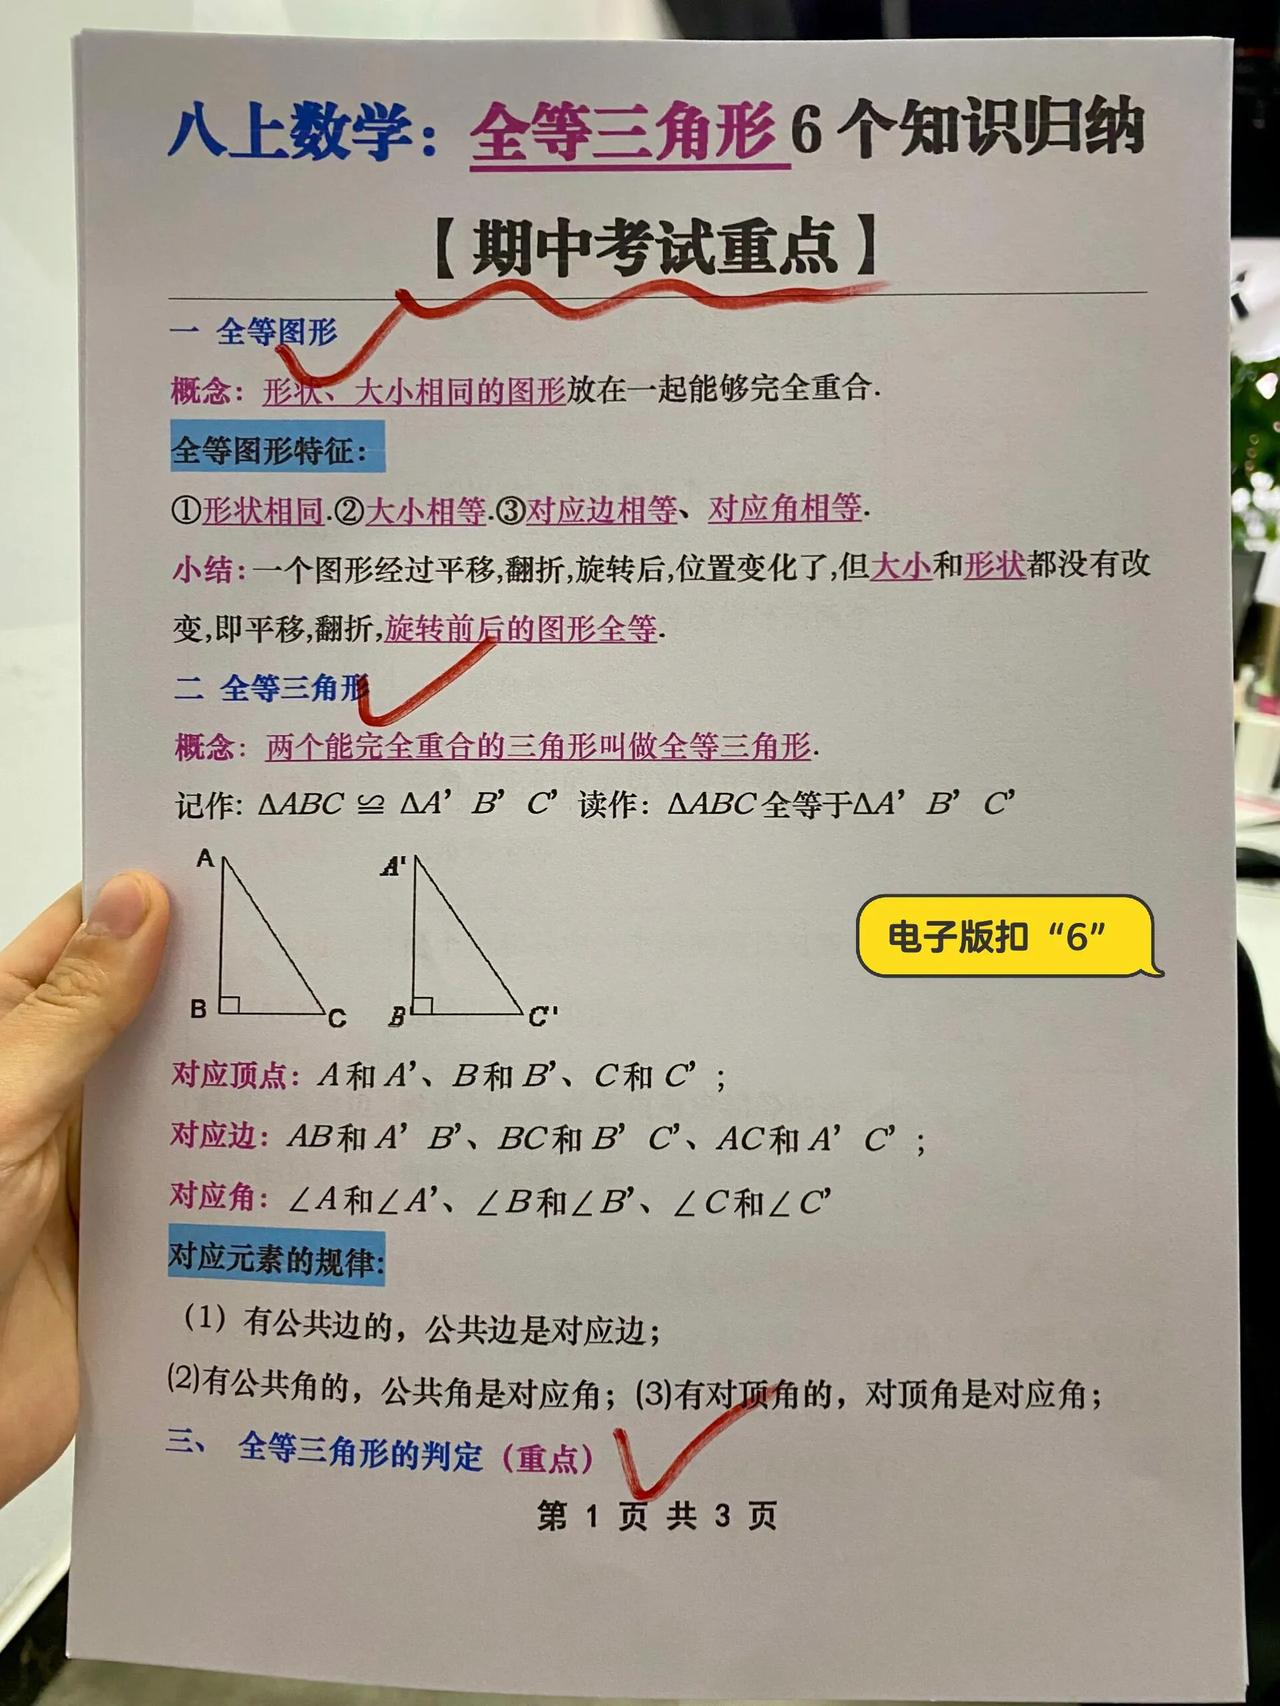 八上数学：全等三角形6个知识归纳
【期中考试重点】
一 全等图形
概念：形状、大小相同的图形放在一起能够完全重合.
全等图形特征：
①形状相同.②大小相等.③对应边相等、对应角相等.
小结：一个图形经过平移,翻折,旋转后,位置变化了,但大小和形状都没有改
变,即平移,翻折,旋转前后的图形全等.
二 全等三角形
概念：两个能完全重合的三角形叫做全等三角形.
记作: ΔABC ≌ ΔA’ B’ C’ 读作：ΔABC全等于ΔA’ B’ C’
A
A'
B
C
B'
C'
电子版扣“6”
对应顶点：A和A’、B和B’、C和C’；
对应边：AB和A’ B’、BC和B’ C’、AC和A’ C’；
对应角：∠A和∠A’、∠B和∠B’、∠C和∠C’
对应元素的规律:
（1）有公共边的，公共边是对应边；
(2)有公共角的，公共角是对应角；(3)有对顶角的，对顶角是对应角；
三、 全等三角形的判定（重点）
第 1 页 共 3 页